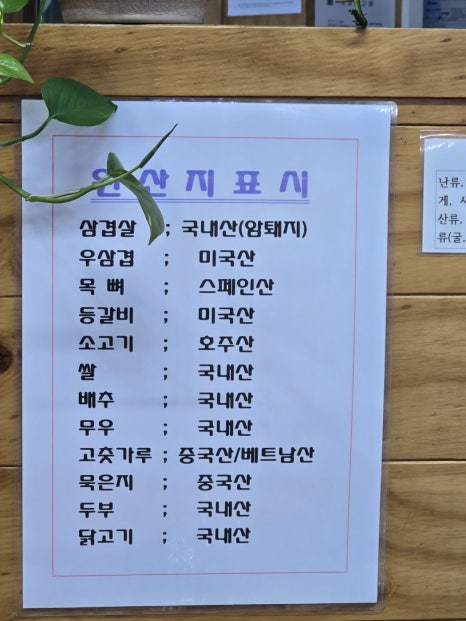 원산지표시
삼겹살 ; 국내산(암퇘지)
우삼겹 ; 미국산
목 뼈 ; 스페인산
등갈비 ; 미국산
소고기 ; 호주산
쌀 ; 국내산
배추 ; 국내산
무우 ; 국내산
고춧가루 ; 중국산/베트남산
묵은지 ; 중국산
두부 ; 국내산
닭고기 ; 국내산
난류,
게,
산류,
류(굴,